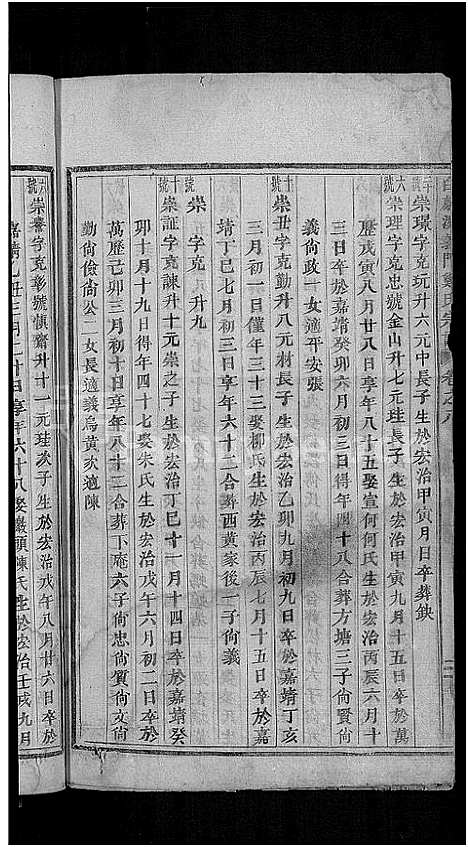 白麟溪義門鄭氏宗譜 卷之八
二十號 崇璟字克玩升六元中長子生於宏治甲寅月日卒葬缺
六號 崇理字克忠號金山升七元珪長子生於宏治甲寅九月十五日卒於萬
歷戊寅八月廿八日享年八十五娶宣何何氏生於宏治丙辰六月十
三日卒於嘉靖癸卯六月初三日得年四十八合葬方塘三子尚賢尚
義尚政一女適平安張
十號 崇丑字克勤升八元材長子生於宏治乙卯九月初九日卒於嘉靖丁亥
三月初一日僅年三十三娶柳氏生於宏治丙辰七月十五日卒於嘉
靖丁巳七月初三日享年六十二合葬西黃家後一子尚義
號 崇 字克 升九
十號 崇証字克諫升十元崇之子生於宏治丁巳十一月十四日卒於嘉靖癸
卯十月十九日得年四十七娶朱氏生於宏治戊午六月初二日卒於
萬歷己卯三月初十日享年八十二合葬下庵六子尚忠尚質尚文尚
勤尚儉尚公二女長適義烏黃次適陳
六號 崇 字克彰號慎齋升十一元珪次子生於宏治戊午八月廿六日卒於
嘉靖乙丑三月二十日享年六十八娶嚴頭陳氏生於宏治壬戌九月